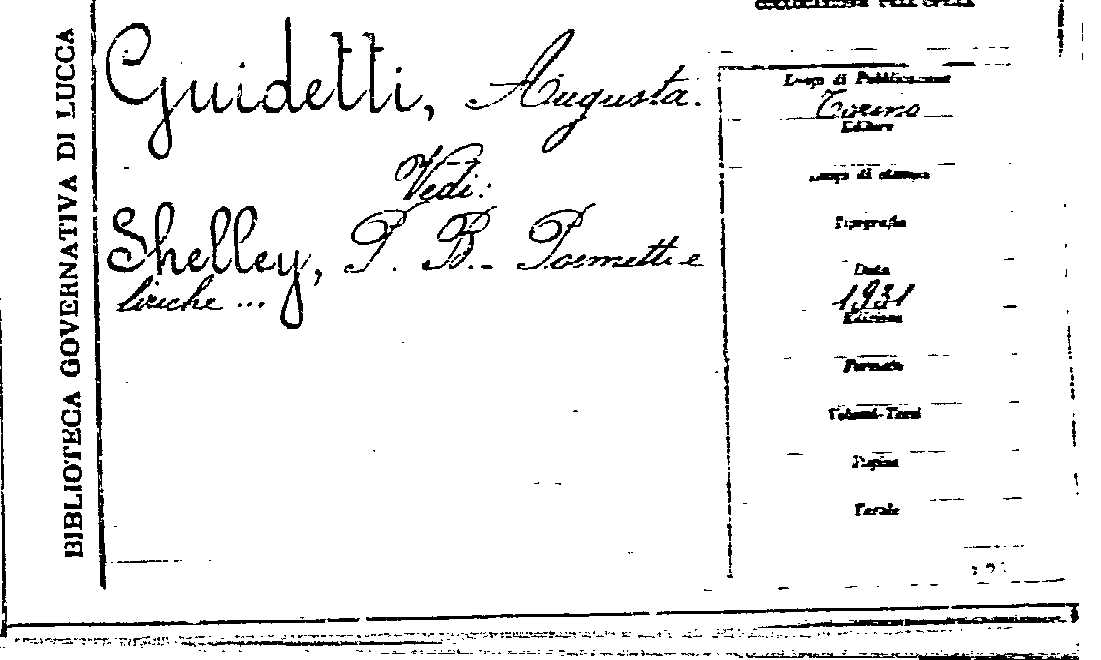 COLLOCAZIONE DELL'OPERA
BIBLIOTECA GOVERNATIVA DI LUCCA
Guidetti, Augusta.
Vedi:
Shelley, P. B. - Poemetti e
liriche ...
Luogo di Pubblicazione
Torino
Editore
Luogo di stampa
Tipografia
Data
1931
Edizione
Formato
Volumi-Tomi
Pagine
Tavole